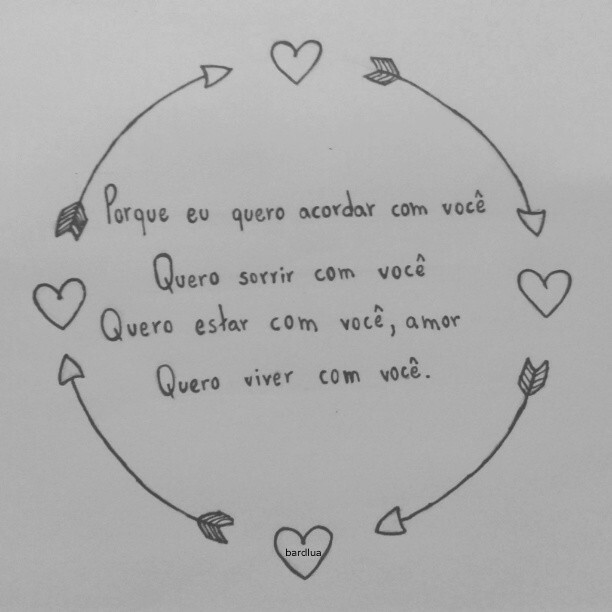 Porque eu quero acordar com você
Quero sorrir com você
Quero estar com você, amor
Quero viver com você.
bardlua